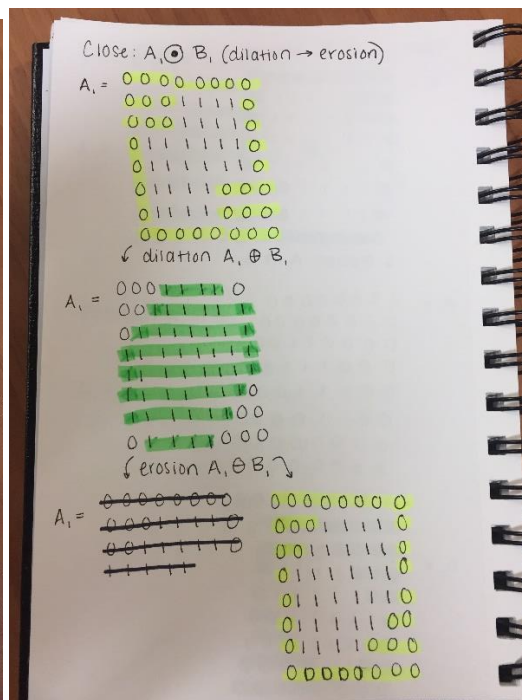 Close: A₁ ⊙ B₁ (dilation → erosion)
A₁ = 0 0 0 0 0 0 0 0
0 0 0 1 1 1 1 0
0 0 0 1 1 1 1 0
0 1 1 1 1 1 1 0
0 1 1 1 1 1 1 0
0 1 1 1 1 0 0 0
0 1 1 1 1 0 0 0
0 0 0 0 0 0 0 0
↙ dilation A₁ ⊕ B₁
A₁ = 0 0 0 1 1 1 1 0
0 0 1 1 1 1 1 1
0 1 1 1 1 1 1 1
1 1 1 1 1 1 1 1
1 1 1 1 1 1 1 1
1 1 1 1 1 1 1 0
1 1 1 1 1 1 0 0
0 1 1 1 1 0 0 0
↙ erosion A₁ ⊖ B₁ ↘
A₁ =
0 0 0 0 0 0 0 0
0 0 0 1 1 1 1 0
0 0 1 1 1 1 1 0
0 1 1 1 1 1 1 0
0 1 1 1 1 1 1 0
0 1 1 1 1 1 0 0
0 1 1 1 1 0 0 0
0 0 0 0 0 0 0 0